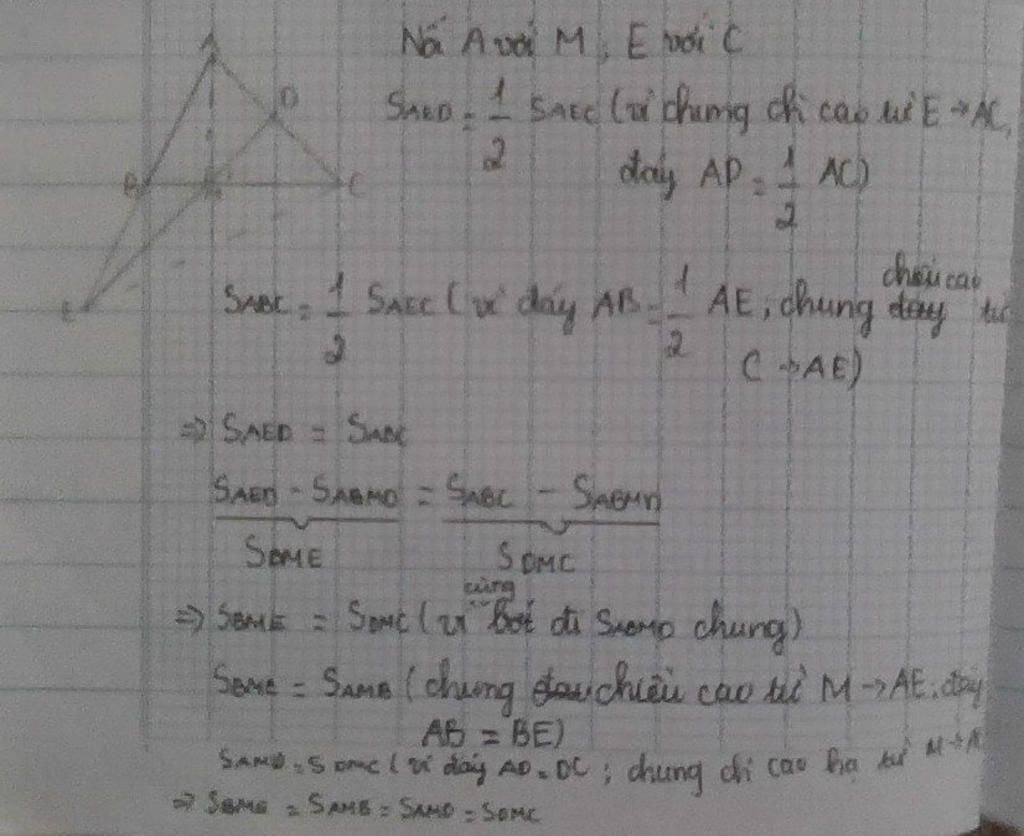 A
D
B
M
C
E
Nối A với M, E với C
SAED = 1/2 SAEC (vì chung chi cao từ E → AC,
đáy AD = 1/2 AC)
SABC = 1/2 SAEC (vì đáy AB = 1/2 AE, chung chiều cao từ
C → AE)
=> SAED = SABC
SAED - SABMD = SABC - SABMD
SBME SDMC
=> SBME = SDMC (vì cùng bớt đi SABMD chung)
SBME = SAMB (chung chiều cao từ M → AE, đáy
AB = BE)
SAMD = SDMC (vì đáy AD = DC; chung chi cao hạ từ M → AC
=> SBME = SAMB = SAMD = SDMC